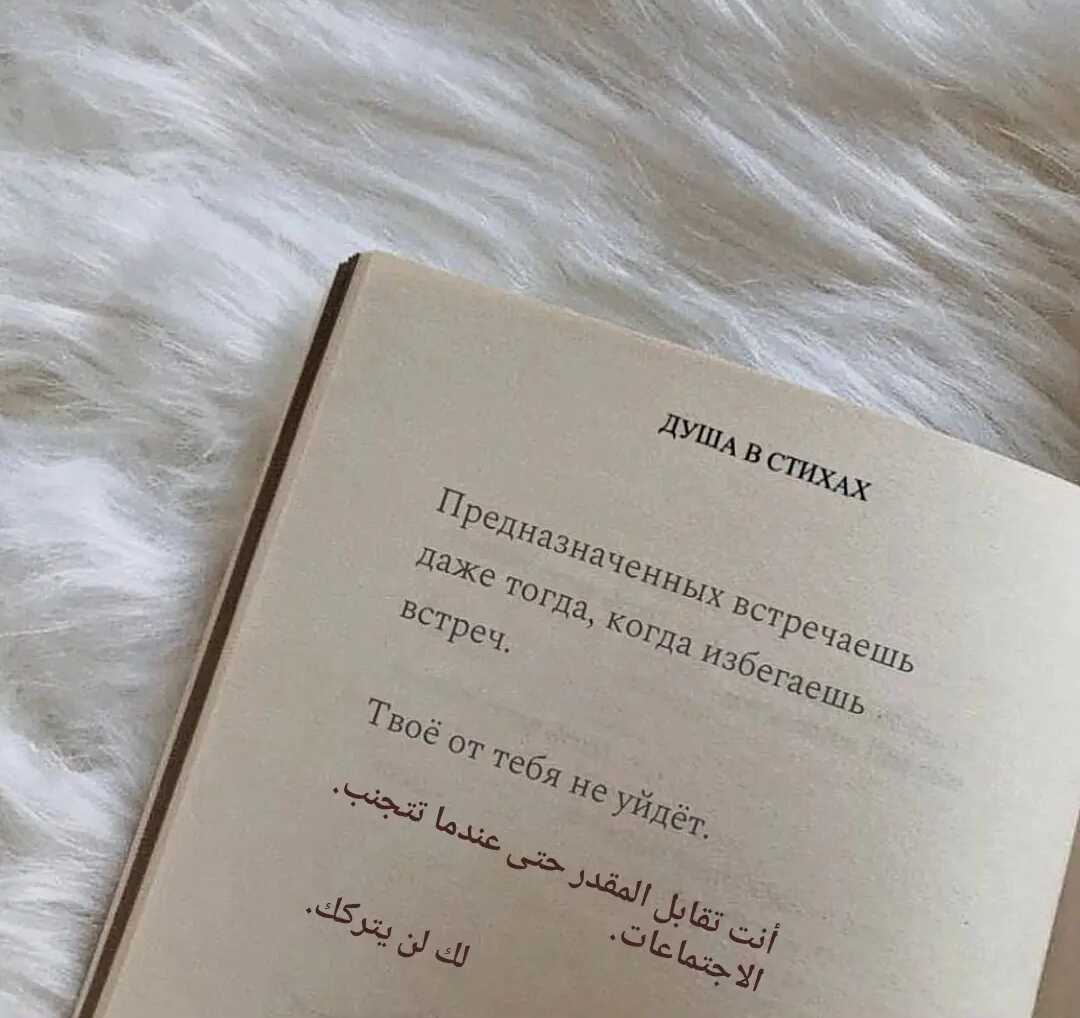 ДУША В СТИХАХ
Предназначенных встречаешь
даже тогда, когда избегаешь
встреч.
Твоё от тебя не уйдёт.
أنت تقابل المقدر حتى عندما تتجنب.
الاجتماعات.
لك لن يتركك.